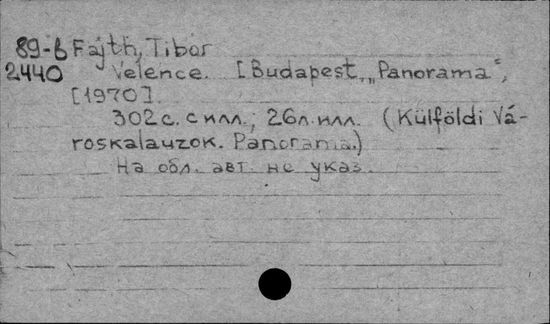 89-б Fajth, Tibor
2440 Velence. [Budapest, „Panorama“,
[1970].
302 с. с илл.; 26 л. илл. (Külföldi Vá-
roskalauzok. Panorama.)
На обл. авт. не указ.